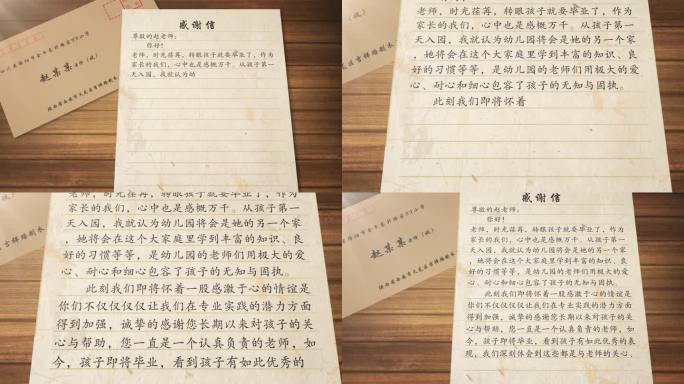 感谢信
尊敬的赵老师：
你好！
老师，时光荏苒，转眼孩子就要毕业了，作为
家长的我们，心中也是感慨万千。从孩子第一
天入园，我就认为幼
赵某某
老师（收）
（收）
老师，时光荏苒，转眼孩子就要毕业了，作为
家长的我们，心中也是感慨万千。从孩子第一
天入园，我就认为幼儿园将会是她的另一个家
，她将会在这个大家庭里学到丰富的知识、良
好的习惯等等，是幼儿园的老师们用极大的爱
心、耐心和细心包容了孩子的无知与固执。
此刻我们即将怀着
老师，时光荏苒，转眼孩子就要毕业了，作为
家长的我们，心中也是感慨万千。从孩子第一
天入园，我就认为幼儿园将会是她的另一个家
，她将会在这个大家庭里学到丰富的知识、良
好的习惯等等，是幼儿园的老师们用极大的爱
心、耐心和细心包容了孩子的无知与固执。
此刻我们即将怀着一股感激于心的情谊是
你们不仅仅仅仅让我们在专业实践的潜力方面
得到加强，诚挚的感谢您长期以来对孩子的关
心与帮助，您一直是一个认真负责的老师，如
今，孩子即将毕业，看到孩子有如此优秀的
感谢信
尊敬的赵老师：
你好！
老师，时光荏苒，转眼孩子就要毕业了，作为
家长的我们，心中也是感慨万千。从孩子第一
天入园，我就认为幼儿园将会是她的另一个家
，她将会在这个大家庭里学到丰富的知识、良
好的习惯等等，是幼儿园的老师们用极大的爱
心、耐心和细心包容了孩子的无知与固执。
此刻我们即将怀着一股感激于心的情谊是
你们不仅仅仅仅让我们在专业实践的潜力方面
得到加强，诚挚的感谢您长期以来对孩子的关
心与帮助，您一直是一个认真负责的老师，如
今，孩子即将毕业，看到孩子有如此优秀的表
现，我们深刻体会到这些都是与老师的关心、
赵某某
老师（收）